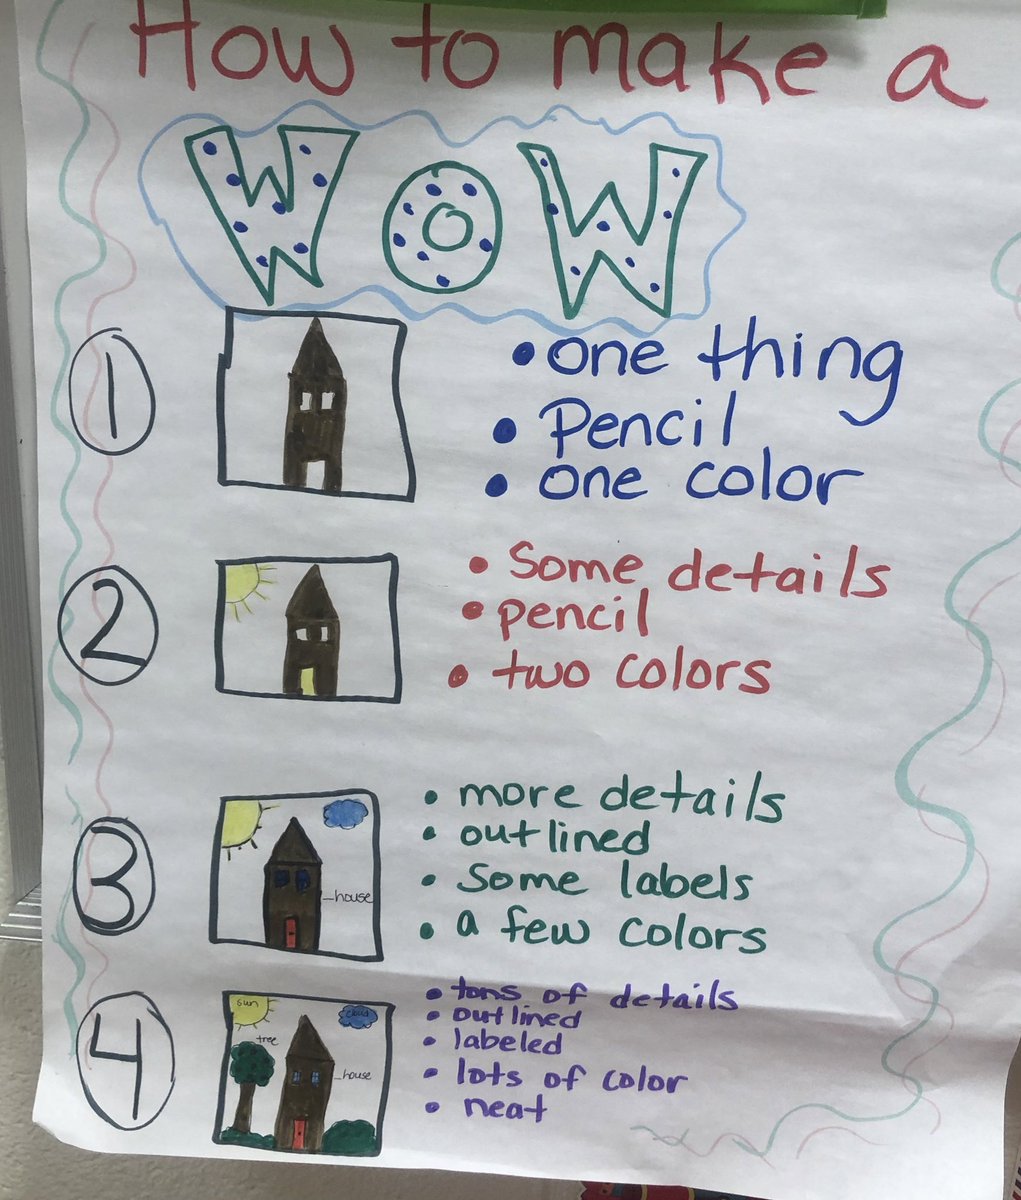 How to make a
WOW
1
• one thing
• Pencil
• one color
2
• Some details
• pencil
• two colors
3
house
• more details
• outlined
• Some labels
• a few colors
4
sun
cloud
tree
house
• tons of details
• outlined
• labeled
• lots of color
• neat